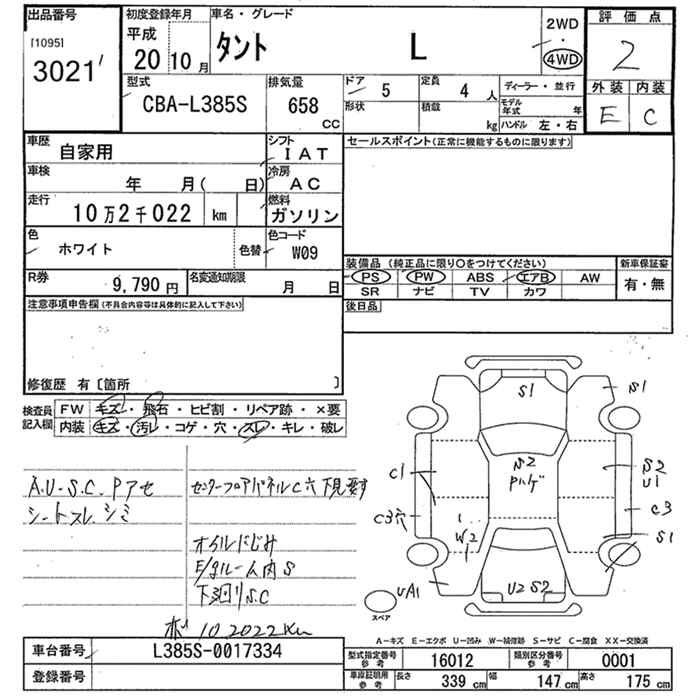 出品番号
[1095]
3021
初度登録年月
平成
20 10月
車名・グレード
タント L
2WD
・
4WD
評価点
2
外装 内装
E C
型式
CBA-L385S
排気量
658
CC
ドア 5
形状
定員 4 人
積載 kg
ディーラー・並行
モデル年式 年
ハンドル 左・右
車歴
自家用
シフト
IAT
車検
年 月( 日)
冷房
AC
走行
10万2千022 km
燃料
ガソリン
色
ホワイト
色替
色コード
W09
R券
9,790円
名変通知期限
月 日
セールスポイント(正常に機能するものに限ります)
装備品(純正品に限り○をつけてください)
PS PW ABS エアB AW
SR ナビ TV カワ
新車保証書
有・無
後日品
注意事項申告欄(不具合内容等は具体的に記入して下さい)
修復歴 有〔箇所 〕
検査員記入欄
FW キズ・飛石・ヒビ割・リペア跡・×要
内装 キズ・汚レ・コゲ・穴・スレ・キレ・破レ
A.U-S.C. Pアセ
シートスレ シミ
センターフロアパネルC穴 下見要す
オイルにじみ
E/gルーム内S
下廻りS.C
10.2022Km
S1
S1
S2
Pハゲ
C1
S2
U1
C3穴
W2
C3
S1
UA1
U2 S2
スペア
A-キズ E-エクボ U-凹み W-補修跡 S-サビ C-腐食 XX-交換済
車台番号
L385S-0017334
登録番号
型式指定番号
参考
16012
類別区分番号
参考
0001
車庫証明用
参考
長さ 339 cm
幅 147 cm
高さ 175 cm